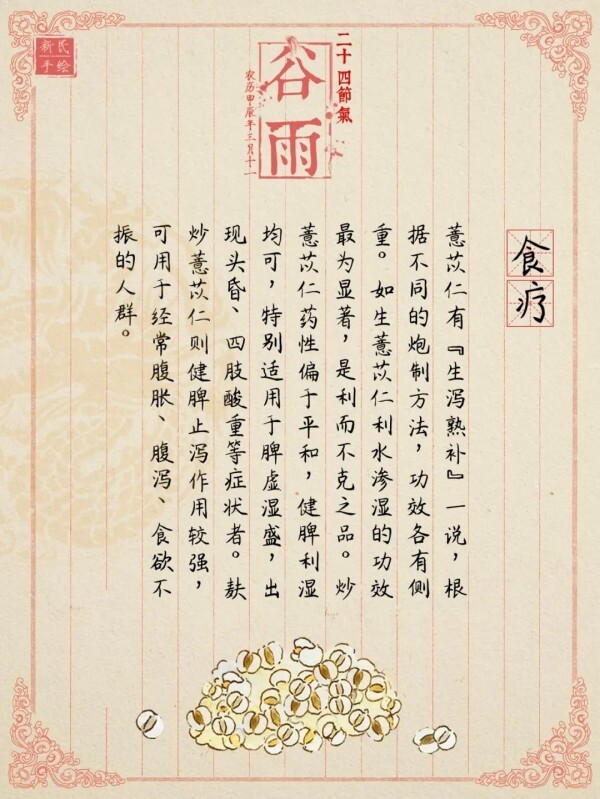 新民
手绘
二十四節氣
谷雨
农历甲辰年三月十一
食疗
薏苡仁有『生泻熟补』一说，根
据不同的炮制方法，功效各有侧
重。如生薏苡仁利水渗湿的功效
最为显著，是利而不克之品。炒
薏苡仁药性偏于平和，健脾利湿
均可，特别适用于脾虚湿盛，出
现头昏、四肢酸重等症状者。麸
炒薏苡仁则健脾止泻作用较强，
可用于经常腹胀、腹泻、食欲不
振的人群。